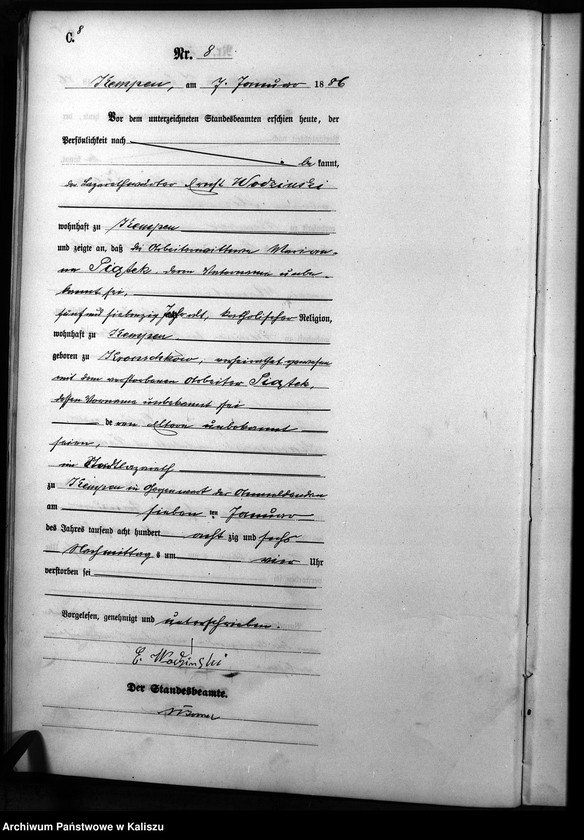 C.8
Nr. 8
Kempen, am 7. Januar 1886
Vor dem unterzeichneten Standesbeamten erschien heute, der
Persönlichkeit nach
bekannt,
der Lazarethwärter Ernst Wodzinski
wohnhaft zu Kempen
und zeigte an, daß die Arbeiterwittwe Marian-
na Piątek, deren Vatersname unbe-
kannt sei,
fünf und siebenzig Jahr alt, katholischer Religion,
wohnhaft zu Kempen
geboren zu verheirathet gewesen
mit dem verstorbenen Arbeiter Piątek,
dessen Vorname unbekannt sei
deren Eltern unbekannt
seien,
im Stadtlazareth
zu Kempen in Gegenwart des Anmeldenden
am sieben ten Januar
des Jahres tausend acht hundert acht zig und sechs
Nachmittags um vier Uhr
verstorben sei
Vorgelesen, genehmigt und unterschrieben.
E. Wodzinski
Der Standesbeamte.
Archiwum Państwowe w Kaliszu